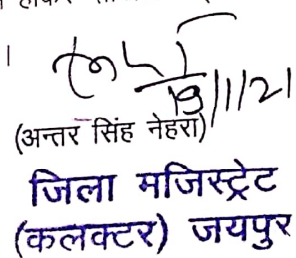 ।
19/1/21
(अन्तर सिंह नेहरा)
जिला मजिस्ट्रेट
(कलक्टर) जयपुर